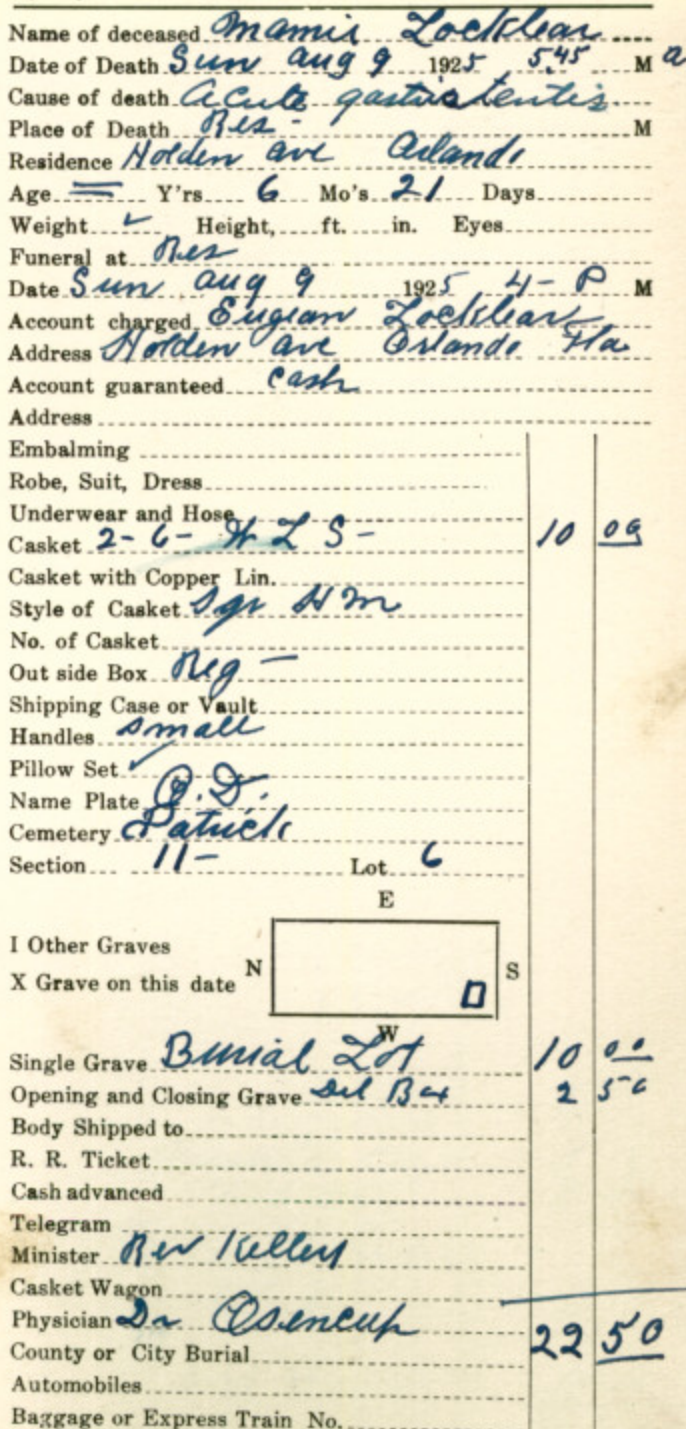 Name of deceased Mamie Locklear
Date of Death Sun Aug 9 1925 5.45 M a
Cause of death Acute gastrointentis
Place of Death Res - M
Residence Holden ave Orlando
Age = Y'rs 6 Mo's 21 Days
Weight ✓ Height, ft. in. Eyes
Funeral at Res
Date Sun Aug 9 1925 4- P M
Account charged Eugean Locklear
Address Holden ave Orlando Fla
Account guaranteed cash
Address
Embalming
Robe, Suit, Dress
Underwear and Hose
Casket 2-6- W L S- 10 00
Casket with Copper Lin.
Style of Casket Sqr H M
No. of Casket
Out side Box Reg -
Shipping Case or Vault
Handles small
Pillow Set ✓
Name Plate O.D.
Cemetery Patrick
Section 11- Lot 6
E
I Other Graves
N S
X Grave on this date
W
Single Grave Burial Lot 10 00
Opening and Closing Grave Del Box 2 50
Body Shipped to
R. R. Ticket
Cash advanced
Telegram
Minister Rev Kellery
Casket Wagon
Physician Dr Osencup
22 50
County or City Burial
Automobiles
Baggage or Express Train No.